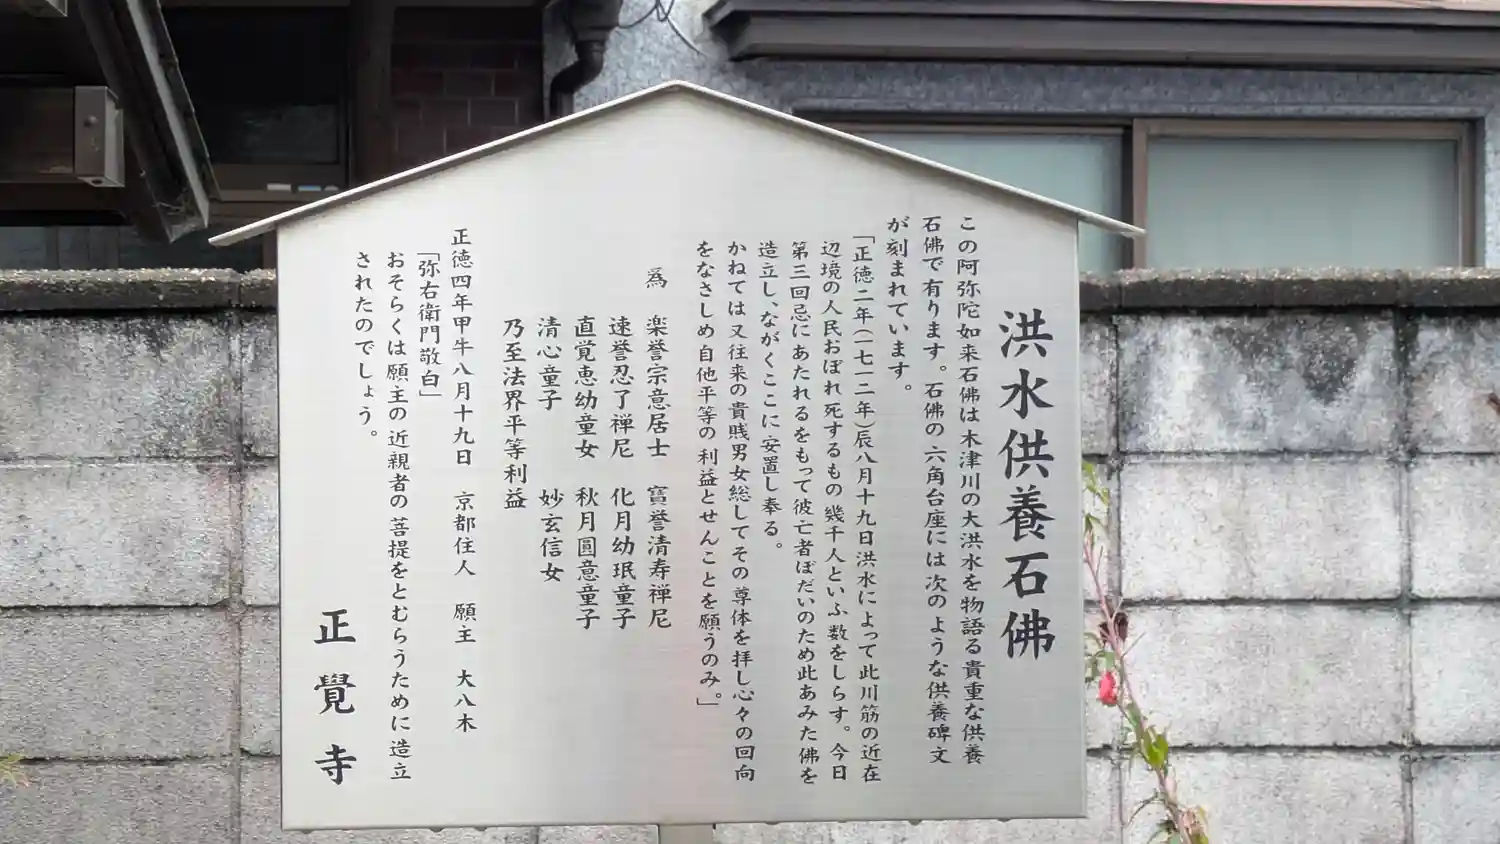 洪水供養石佛
この阿弥陀如来石佛は木津川の大洪水を物語る貴重な供養
石佛で有ります。石佛の六角台座には次のような供養碑文
が刻まれています。
「正徳二年(一七一二年)辰八月十九日洪水によって此川筋の近在
辺境の人民おぼれ死するもの幾千人といふ数をしらす。今日
第三回忌にあたれるをもって彼亡者ぼだいのため此あみた佛を
造立し、ながくここに安置し奉る。
かねては又往来の貴賎男女総してその尊体を拝し心々の回向
をなさしめ自他平等の利益とせんことを願うのみ。」
為 楽誉宗意居士 寶誉清寿禅尼
速誉忍了禅尼 化月幼珉童子
直覚恵幼童女 秋月圓意童子
清心童子 妙玄信女
乃至法界平等利益
正徳四年甲牛八月十九日 京都住人 願主 大八木
「弥右衛門敬白」
おそらくは願主の近親者の菩提をとむらうために造立
されたのでしょう。
正覺寺